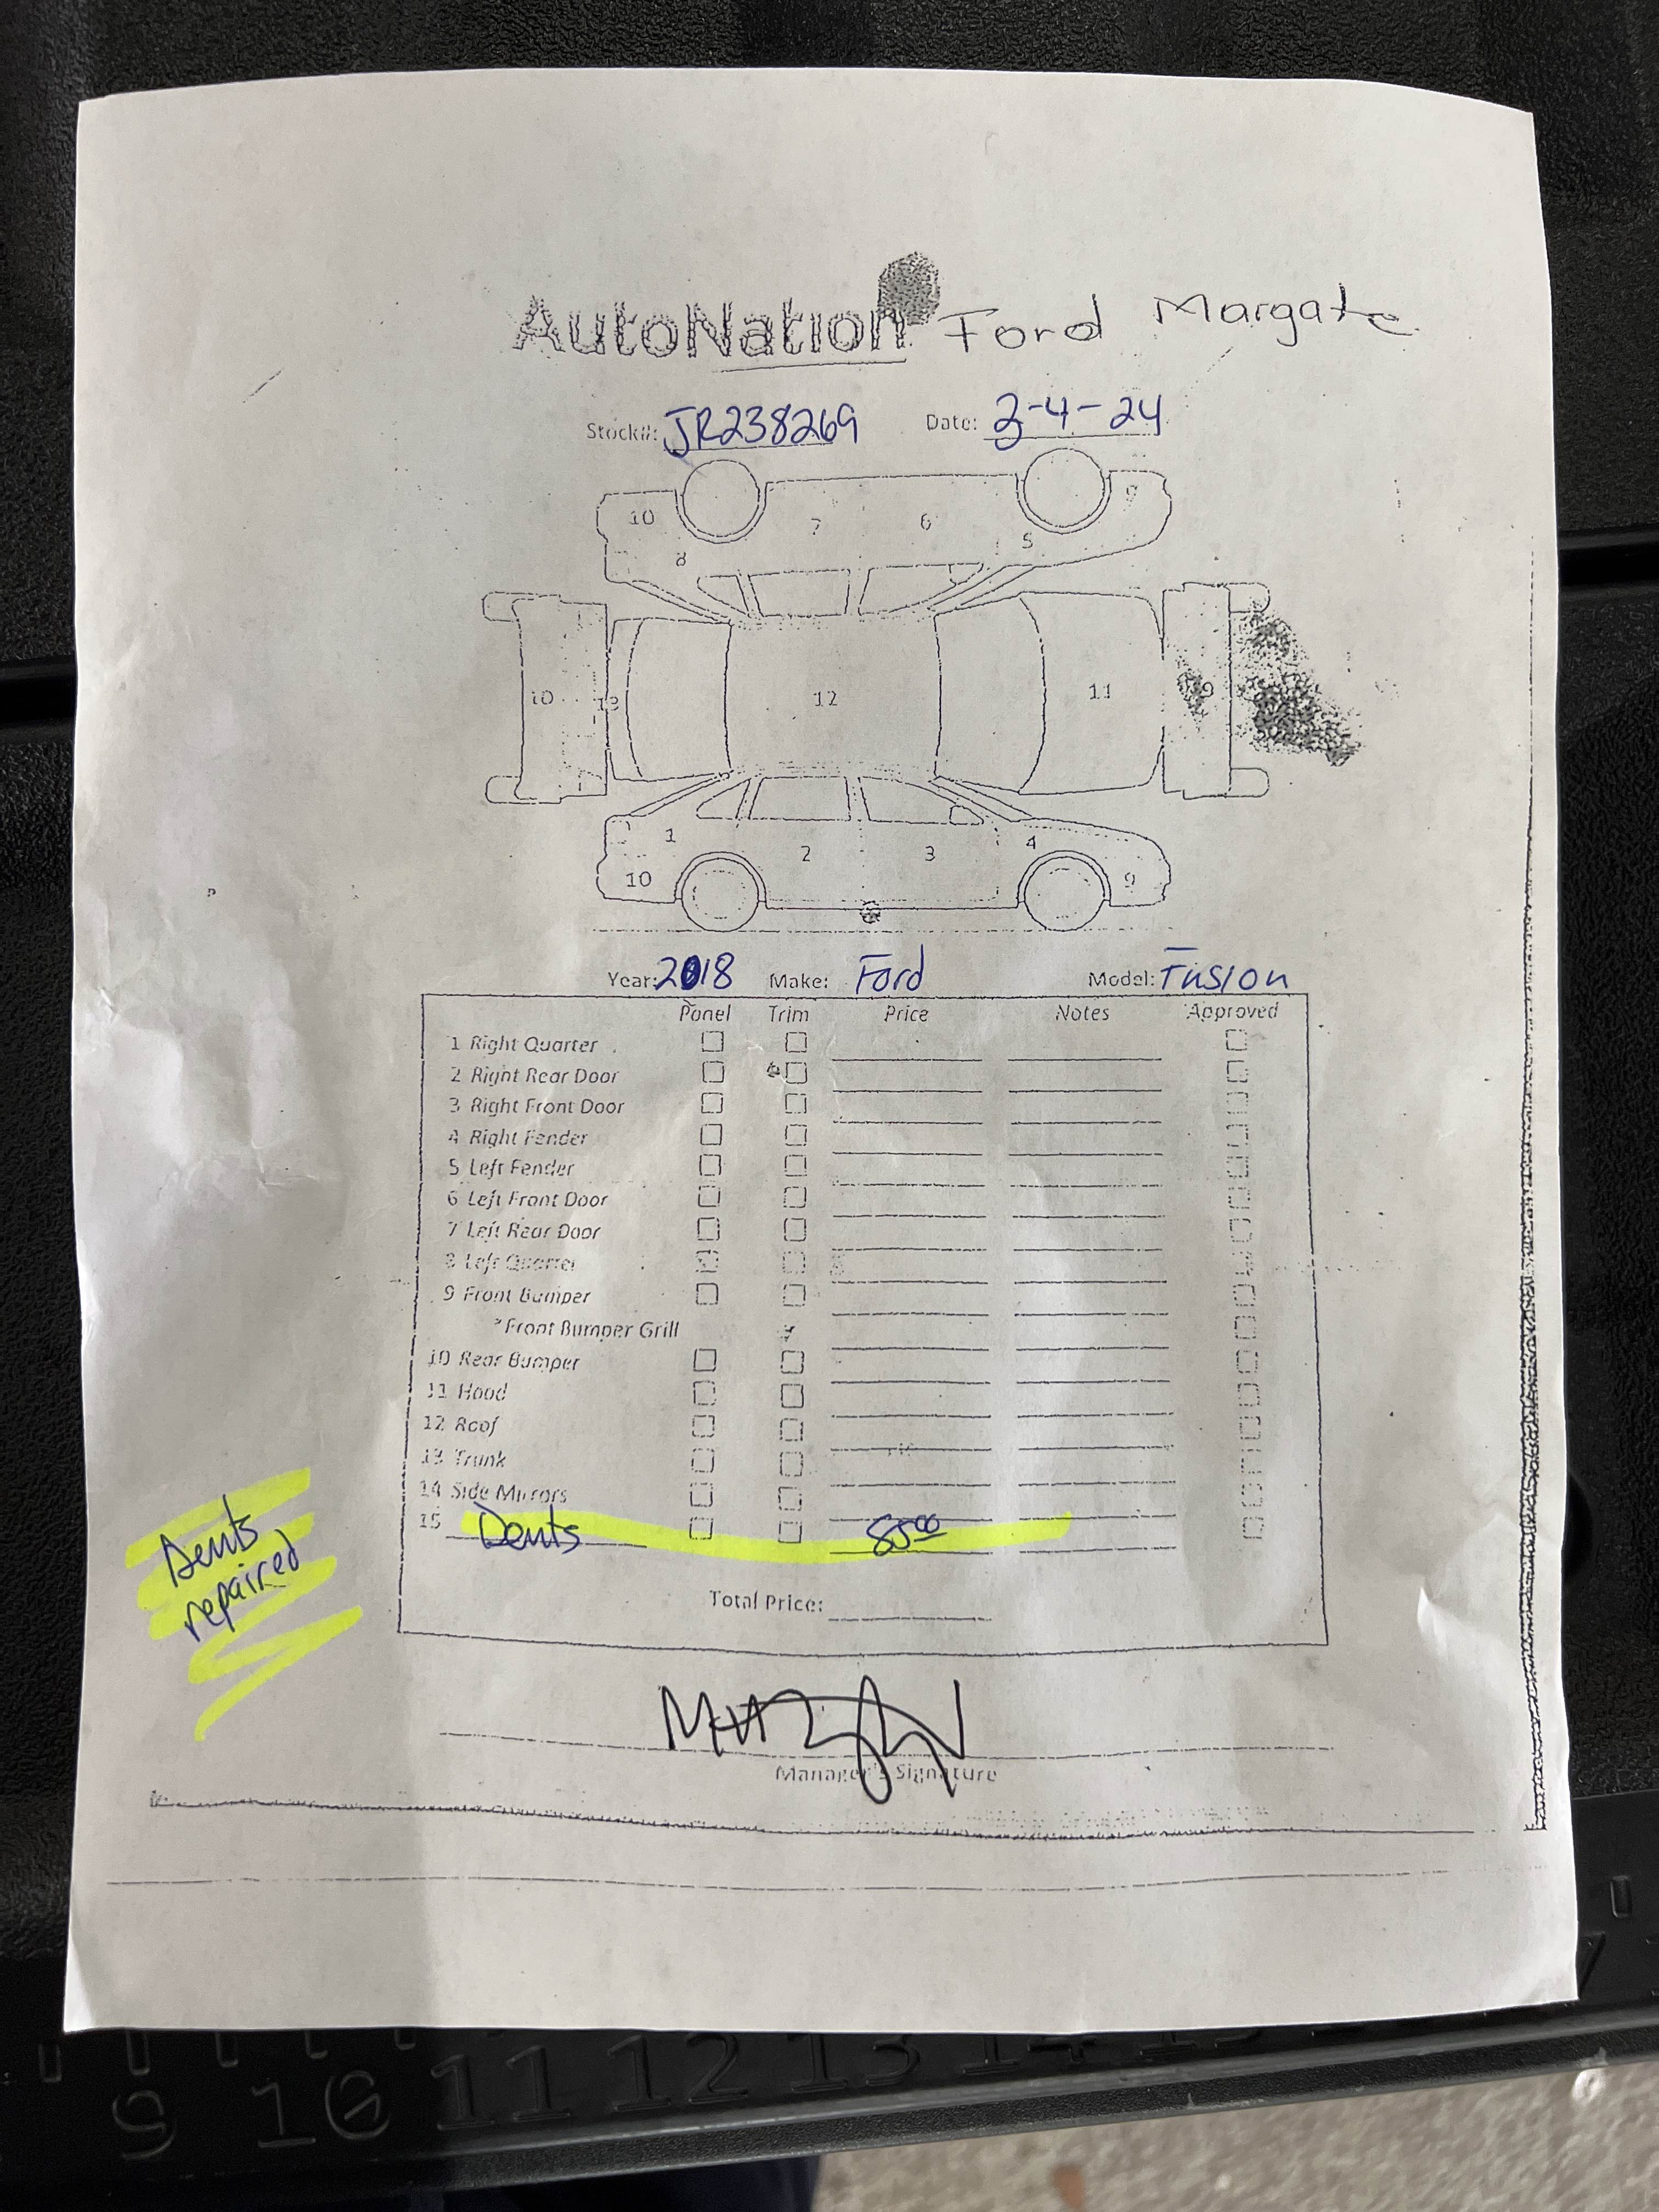 AutoNation Ford Margate
Stock#: JR238269 Date: 3-4-24
10 7 6 5 9
8
10 13 12 11 9
1 2 3 4
10 9
Year: 2018 Make: Ford Model: Fusion
Panel Trim Price Notes Approved
1 Right Quarter
2 Right Rear Door
3 Right Front Door
4 Right Fender
5 Left Fender
6 Left Front Door
7 Left Rear Door
8 Left Quarter
9 Front Bumper
*Front Bumper Grill
10 Rear Bumper
11 Hood
12 Roof
13 Trunk
14 Side Mirrors
15 Dents 85.00
Total Price:
Dents
repaired
Manager's Signature
9 10 11 12 13 14 15